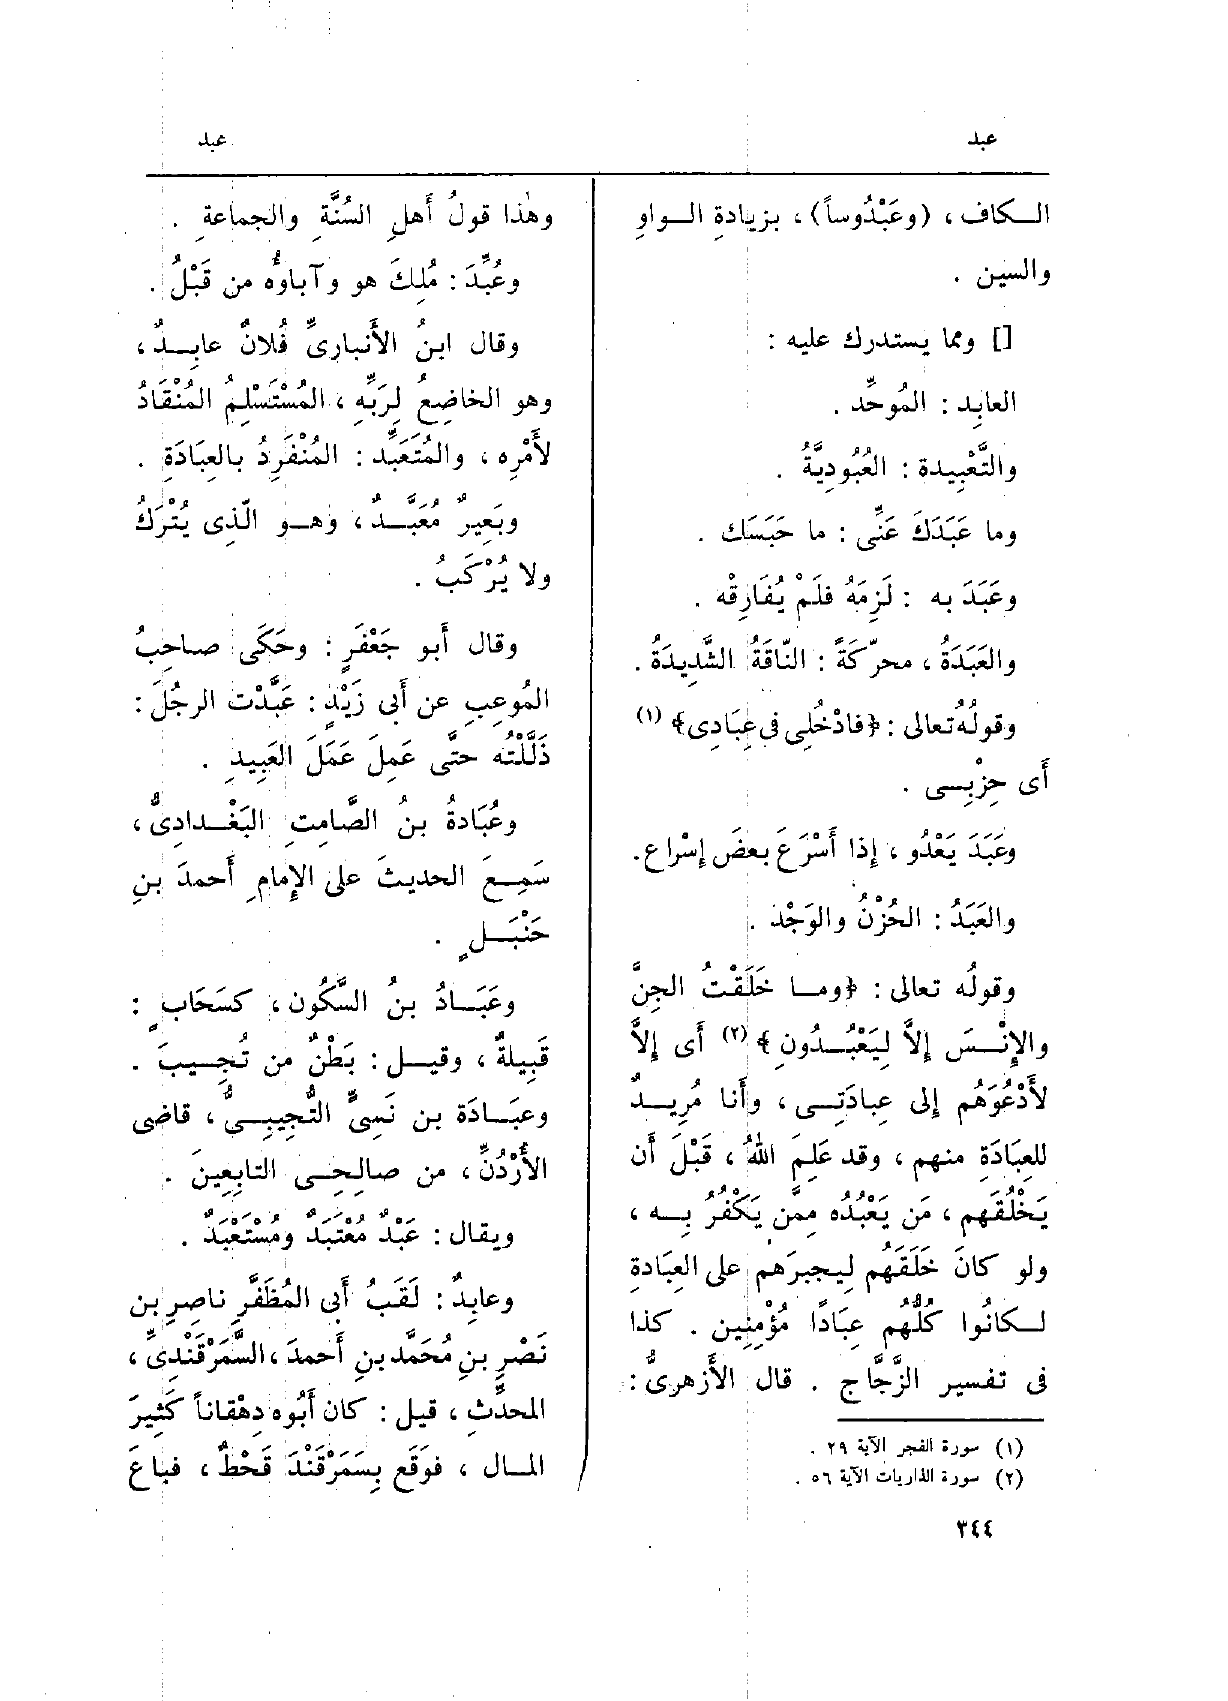 عبد
عبد
الكاف ، (وعَبْدُوساً) ، بزيادةِ الواوِ
والسين .
[] ومما يستدرك عليه :
العابِد : المُوحِّد .
والتَّعْبِيدة : العُبُودِيَّةُ .
وما عَبَدَكَ عَنِّى : ما حَبَسَك .
وعَبَدَ به : لَزِمَهُ فلَمْ يُفَارِقْه .
والعَبَدَةُ ، محرّكَةً : النّاقَةُ الشَّدِيدَةُ .
وقولُه تعالى : ﴿فادْخُلِى فى عِبَادِى﴾ (١)
أَى حِزْبِى .
وعَبَدَ يَعْدُو ، إِذا أَسْرَعَ بعضَ إِسْراع.
والعَبَدُ : الحُزْنُ والوَجْد .
وقولُه تعالى : ﴿وما خَلَقْتُ الجِنَّ
والإِنْسَ إِلاَّ لِيَعْبُدُونِ﴾ (٢) أَى إِلاَّ
لأَدْعُوَهُم إِلى عِبادَتِى ، وأَنا مُرِيدٌ
للعِبَادَةِ منهم ، وقد عَلِمَ اللهُ ، قَبْلَ أَن
يَخْلُقَهم ، مَن يَعْبُدُه مِمَّن يَكْفُرُ بِه ،
ولو كانَ خَلَقَهُم لِيجبرَهم على العِبَادةِ
لكانُوا كلُّهُم عِبَادًا مُؤْمِنِين . كذا
فى تفسير الزَّجَّاج . قال الأَزهرىُّ :
(١) سورة الفجر الآية ٢٩ .
(٢) سورة الذاريات الآية ٥٦ .
وهٰذا قولُ أَهلِ السُنَّةِ والجماعةِ .
وعُبِّدَ : مُلِكَ هو وآباؤُه من قَبْلُ .
وقال ابنُ الأَنبارىِّ فُلانٌ عابِدٌ ،
وهو الخاضِعُ لِرَبِّه ، المُسْتَسْلِمُ المُنْقَادُ
لأَمْرِه ، والمُتَعَبِّد : المُنْفَرِدُ بالعِبَادَةِ .
وبَعِيرٌ مُعَبَّدٌ ، وَهو الَّذِى يُتْرَكُ
ولا يُرْكَبُ .
وقال أَبو جَعْفَرٍ : وحَكَى صاحِبُ
المُوعِبِ عن أَبى زَيْدٍ : عَبَّدْت الرجُلَ :
ذَلَّلْتُه حتَّى عَمِلَ عَمَلَ العَبِيدِ .
وعُبَادةُ بنُ الصَّامِتِ البَغْدادِىُّ ،
سَمِعَ الحديثَ على الإِمامِ أَحمدَ بنِ
حَنْبَلٍ .
وعَبَادُ بنُ السَّكُون ، كسَحَابٍ :
قَبِيلةٌ ، وقيل : بَطْنٌ من تُجِيبَ .
وعبَادَة بن نَسِىٍّ التُّجِيبِىُّ ، قاضى
الأُرْدُنِّ ، من صالِحِى التابِعِينَ .
ويقال : عَبْدٌ مُعْتَبَدٌ ومُسْتَعْبَدٌ .
وعابِدٌ : لَقَبُ أَبى المُظَفَّرِ ناصِرِ بن
نَصْرِ بنِ مُحَمَّد بنِ أَحمدَ ، السَّمَرْقَنْدِىِّ ،
المحدِّثِ ، قيل : كان أَبُوه دِهْقاناً كَثِيرَ
المال ، فوَقَع بِسَمَرْقَنْدَ قَحْطٌ ، فباعَ
٣٤٤